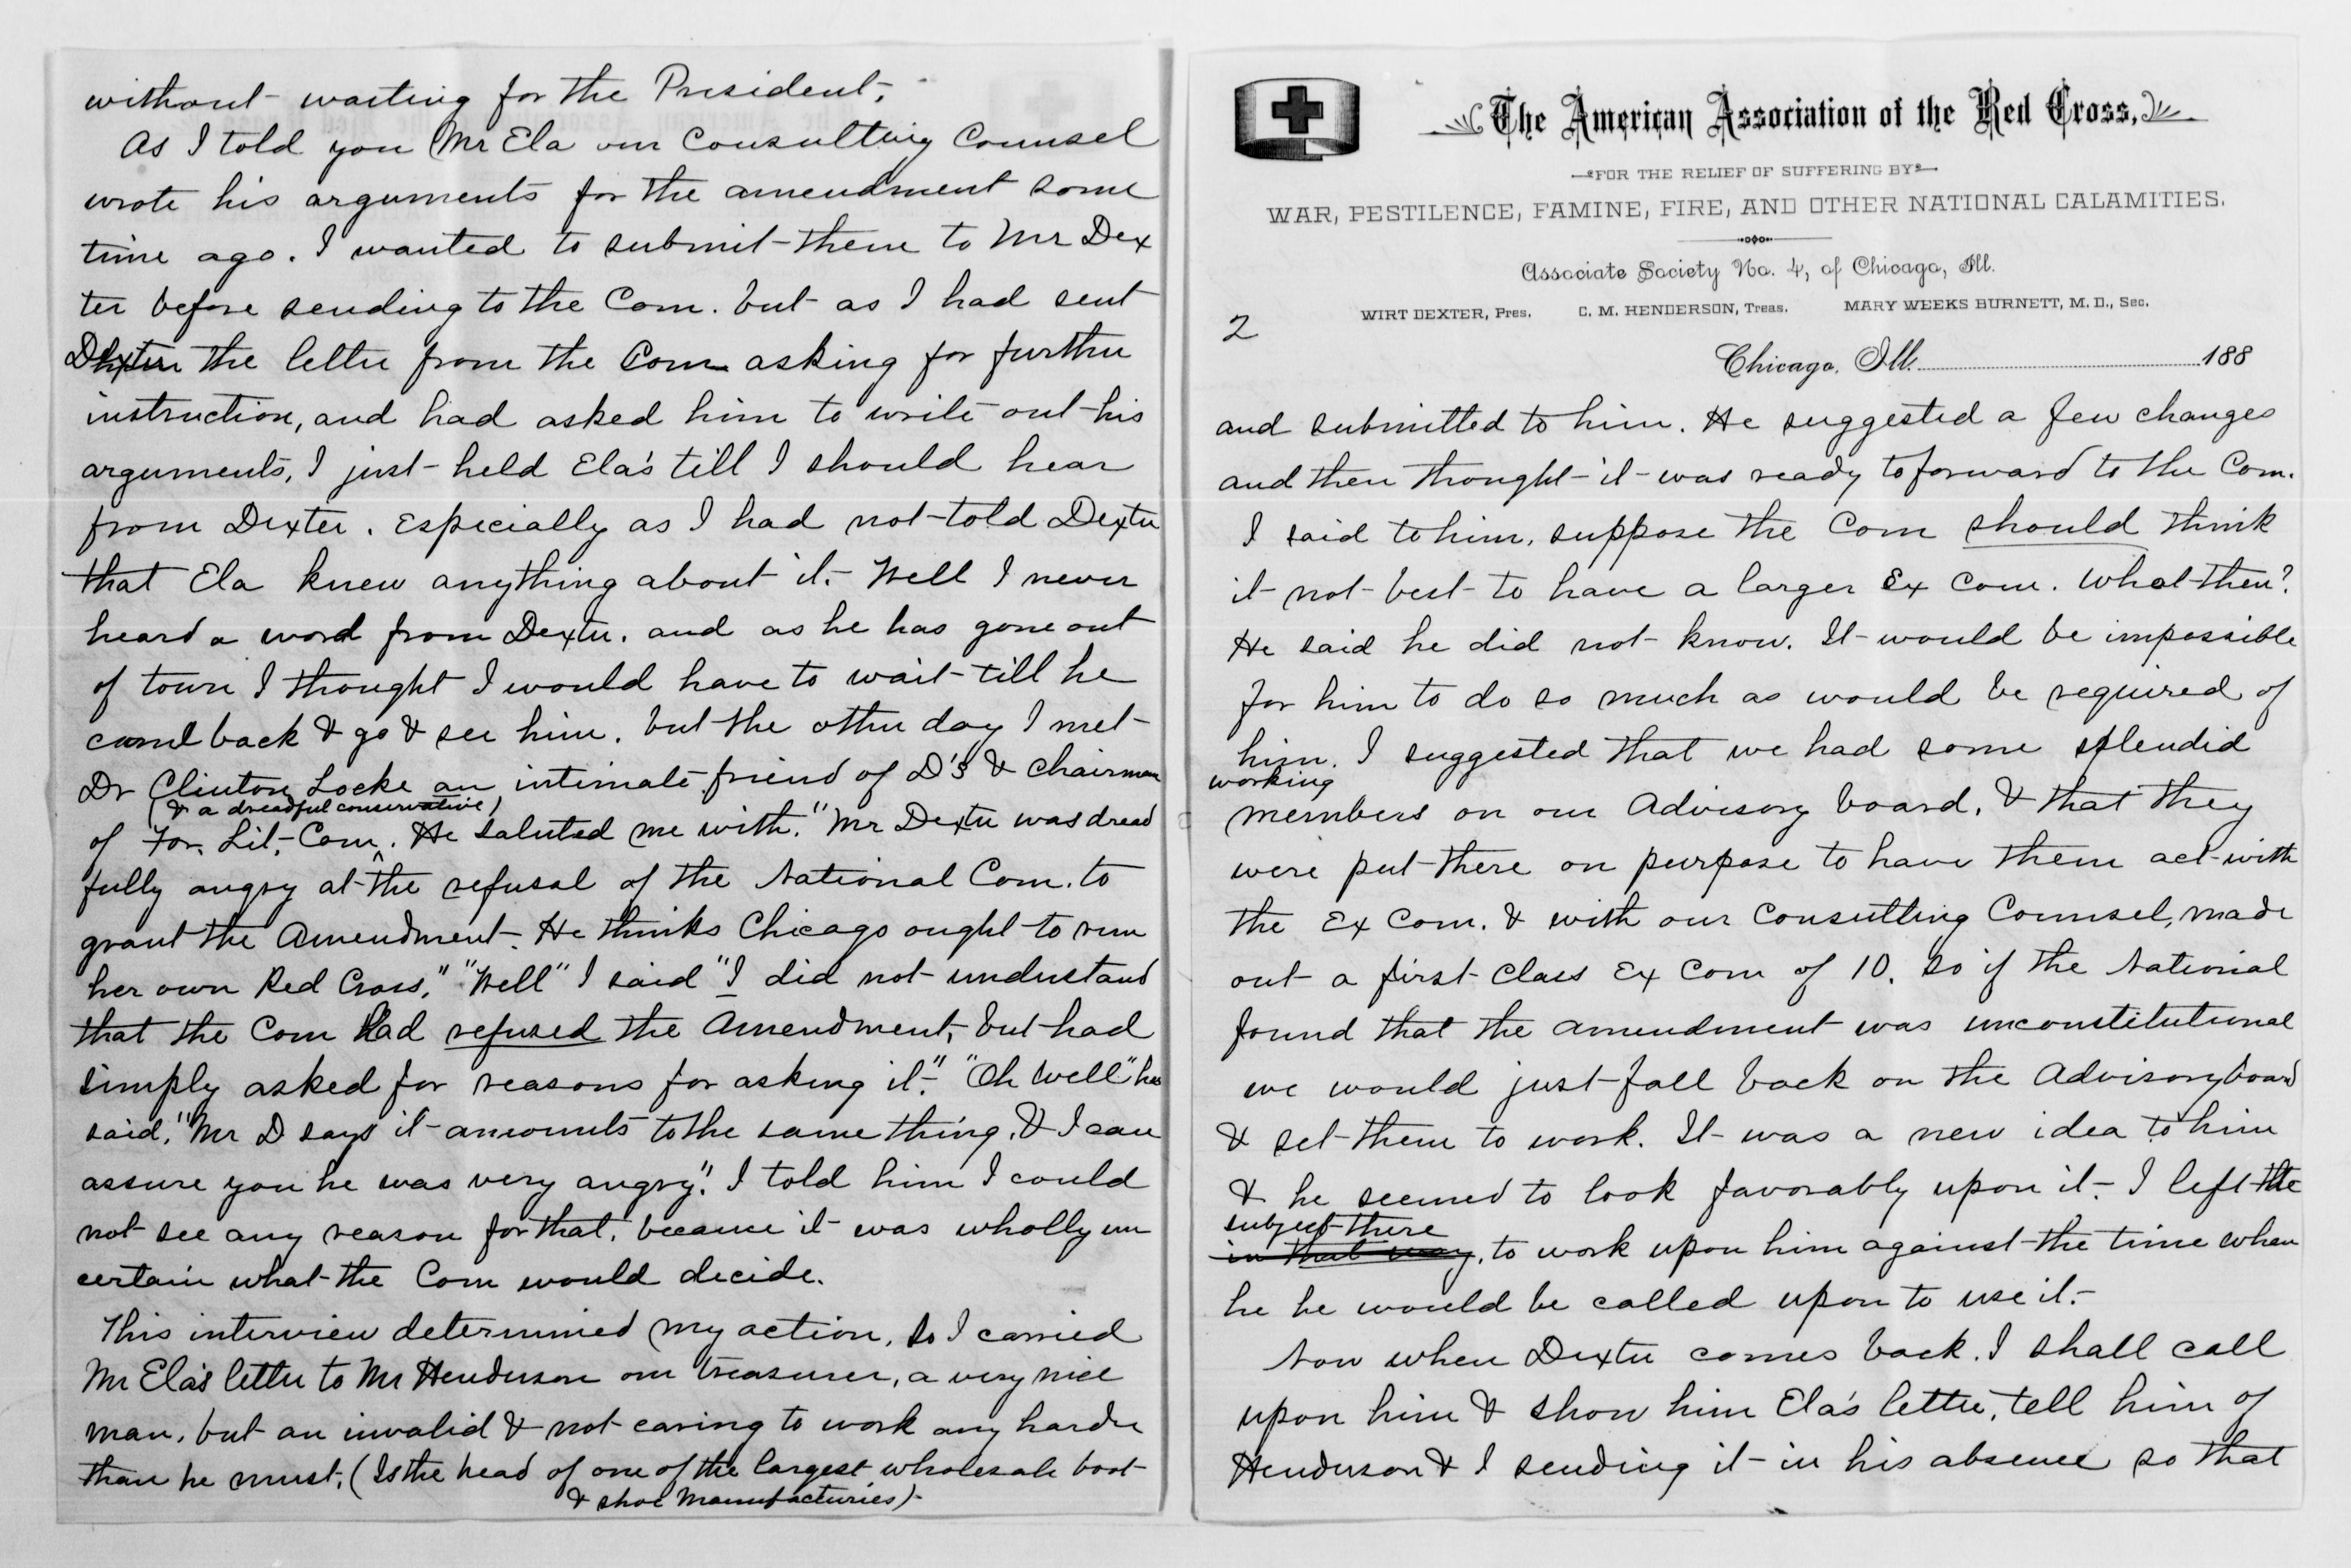 without waiting for the President.
As I told you Mr Ela our Consulting Counsel
wrote his arguments for the amendment some
time ago. I wanted to submit them to Mr Dex
ter before sending to the Com. but as I had sent
Dexter the letter from the Com asking for further
instruction, and had asked him to write out his
arguments, I just held Ela's till I should hear
from Dexter. Especially as I had not told Dexter
that Ela knew anything about it. Well I never
heard a word from Dexter. and as he has gone out
of town I thought I would have to wait till he
came back & go & see him. but the other day I met
Dr Clinton Locke an intimate friend of D's & Chairman
(& a dreadful conservative)
of For. Lit. Com. He saluted me with. "Mr Dexter was dread
fully angry at the refusal of the National Com. to
grant the Amendment. He thinks Chicago ought to run
her own Red Cross." "Well" I said "I did not understand
that the Com had refused the Amendment, but had
simply asked for reasons for asking it." "Oh Well" he
said, "Mr D says it amounts to the same thing, & I can
assure you he was very angry." I told him I could
not see any reason for that, because it was wholly un
certain what the Com would decide.
This interview determined my action, so I carried
Mr Ela's letter to Mr Henderson our treasurer, a very nice
man, but an invalid & not caring to work any harder
than he must. (Is the head of one of the largest wholesale boot
& shoe manufacturies).
The American Association of the Red Cross,
FOR THE RELIEF OF SUFFERING BY
WAR, PESTILENCE, FAMINE, FIRE, AND OTHER NATIONAL CALAMITIES.
Associate Society No. 4, of Chicago, Ill.
WIRT DEXTER, Pres. C. M. HENDERSON, Treas. MARY WEEKS BURNETT, M. D., Sec.
2
Chicago, Ill. 188
and submitted to him. He suggested a few changes
and then thought it was ready to forward to the Com.
I said to him, suppose the Com should think
it not best to have a larger Ex Com. What then?
He said he did not know. It would be impossible
for him to do so much as would be required of
him. I suggested that we had some splendid
working
members on our Advisory board, & that they
were put there on purpose to have them act with
the Ex Com. & with our Consulting Counsel, made
out a first class Ex Com of 10. So if the National
found that the amendment was unconstitutional
we would just fall back on the Advisory board
& set them to work. It was a new idea to him
& he seemed to look favorably upon it. I left the
subject there
in that way, to work upon him against the time when
he he would be called upon to use it.
Now when Dexter comes back. I shall call
upon him & show him Ela's letter, tell him of
Henderson & I sending it in his absence so that